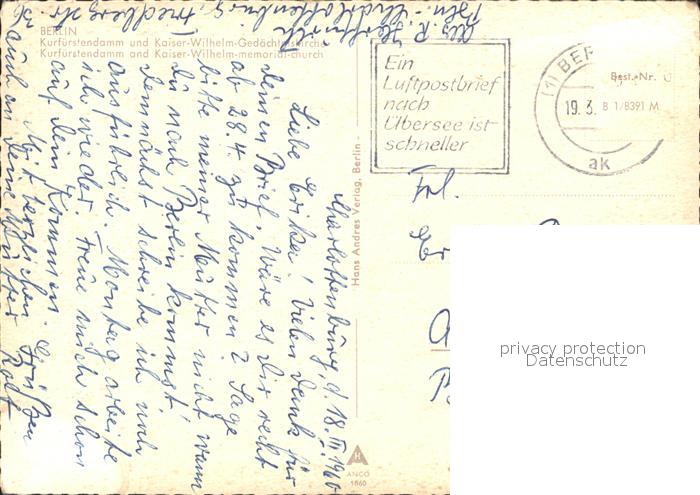 BERLIN
Kurfürstendamm und Kaiser-Wilhelm-Gedächtniskirche
Kurfürstendamm and Kaiser-Wilhelm-memorial-church
Ein
Luftpostbrief
nach
Übersee ist
schneller
(1) BER
19. 3.
ak
Best.-Nr.
B 1/8391 M
Hans Andres Verlag, Berlin -
ANCO
1860
Frl.
privacy protection
Datenschutz
Charlottenburg d. 18. III 1960
Liebe Erika! Vielen Dank für
deinen Brief. Wäre es Dir recht
ab 28.4. zu kommen? Sage
bitte meiner Mutter nicht wann
du nach Berlin kommst!
Demnächst schreibe ich mal
ausführlich. Montag arbeite
ich wieder. Freue mich schon
auf dein Kommen.
Mit herzlichen Grüßen
auch an deine Mutter Rolf
Abs. R.
Bln. Charlottenburg, Str. 36